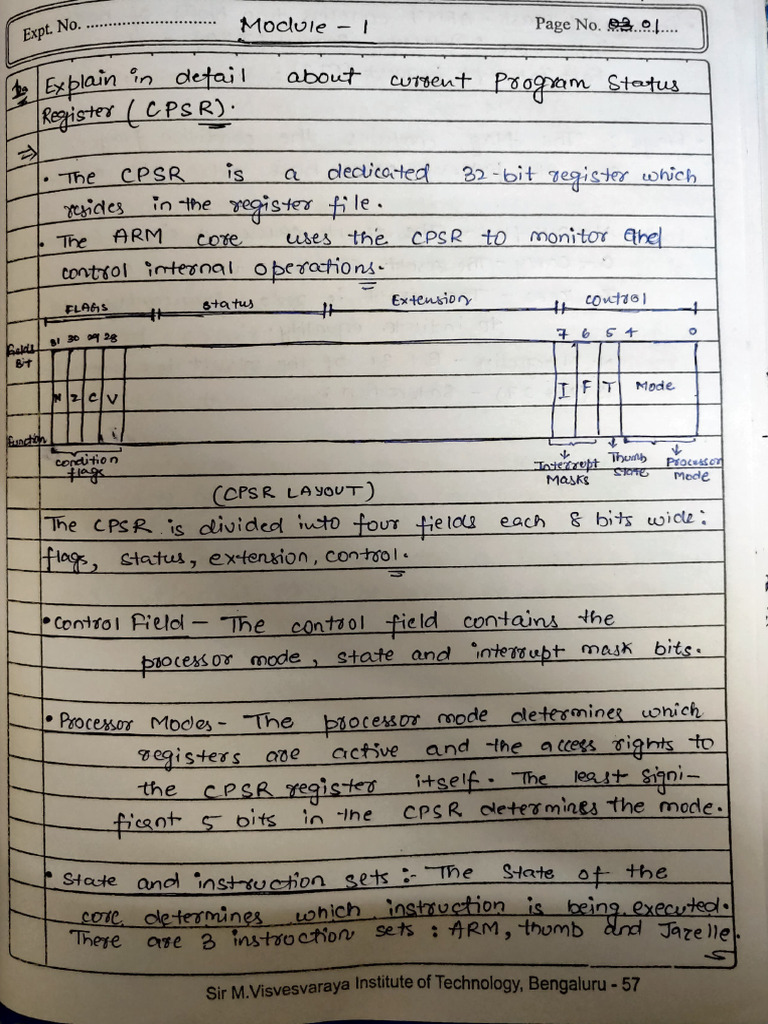 Expt. No. ............................ Module - 1 Page No. 01
1. Explain in detail about current Program Status
Register (CPSR).
⇒
• The CPSR is a dedicated 32-bit register which
resides in the register file.
• The ARM core uses the CPSR to monitor and
control internal operations.
FLAGS Status Extension control
Fields
Bit 31 30 29 28 7 6 5 4 0
N Z C V I F T Mode
Function
condition flags Interrupt Masks Thumb State Processor Mode
(CPSR LAYOUT)
The CPSR is divided into four fields each 8 bits wide:
flags, status, extension, control.
• Control Field - The control field contains the
processor mode, state and interrupt mask bits.
• Processor Modes - The processor mode determines which
registers are active and the access rights to
the CPSR register itself. The least signi-
ficant 5 bits in the CPSR determines the mode.
• State and instruction sets :- The State of the
core determines which instruction is being executed.
There are 3 instruction sets : ARM, thumb and Jazelle.
Sir M.Visvesvaraya Institute of Technology, Bengaluru - 57